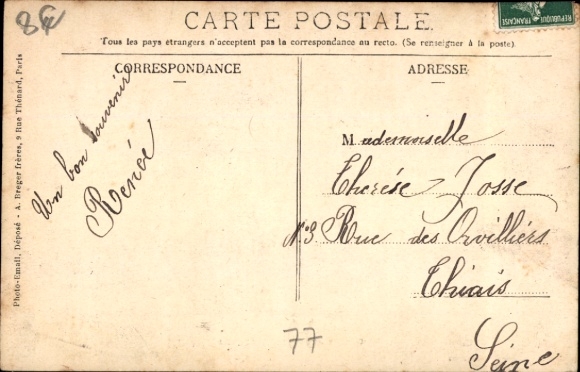 8€
CARTE POSTALE
REPUBLIQUE FRANÇAISE
Tous les pays étrangers n'acceptent pas la correspondance au recto. (Se renseigner à la poste).
CORRESPONDANCE
Un bon souvenir
Renée
ADRESSE
Mademoiselle
Therése Josse
N.º 3 Rue des Orvilliers
Thiais
Seine
77
Photo-Email, Déposé - A. Breger frères, 9 Rue Thénard, Paris